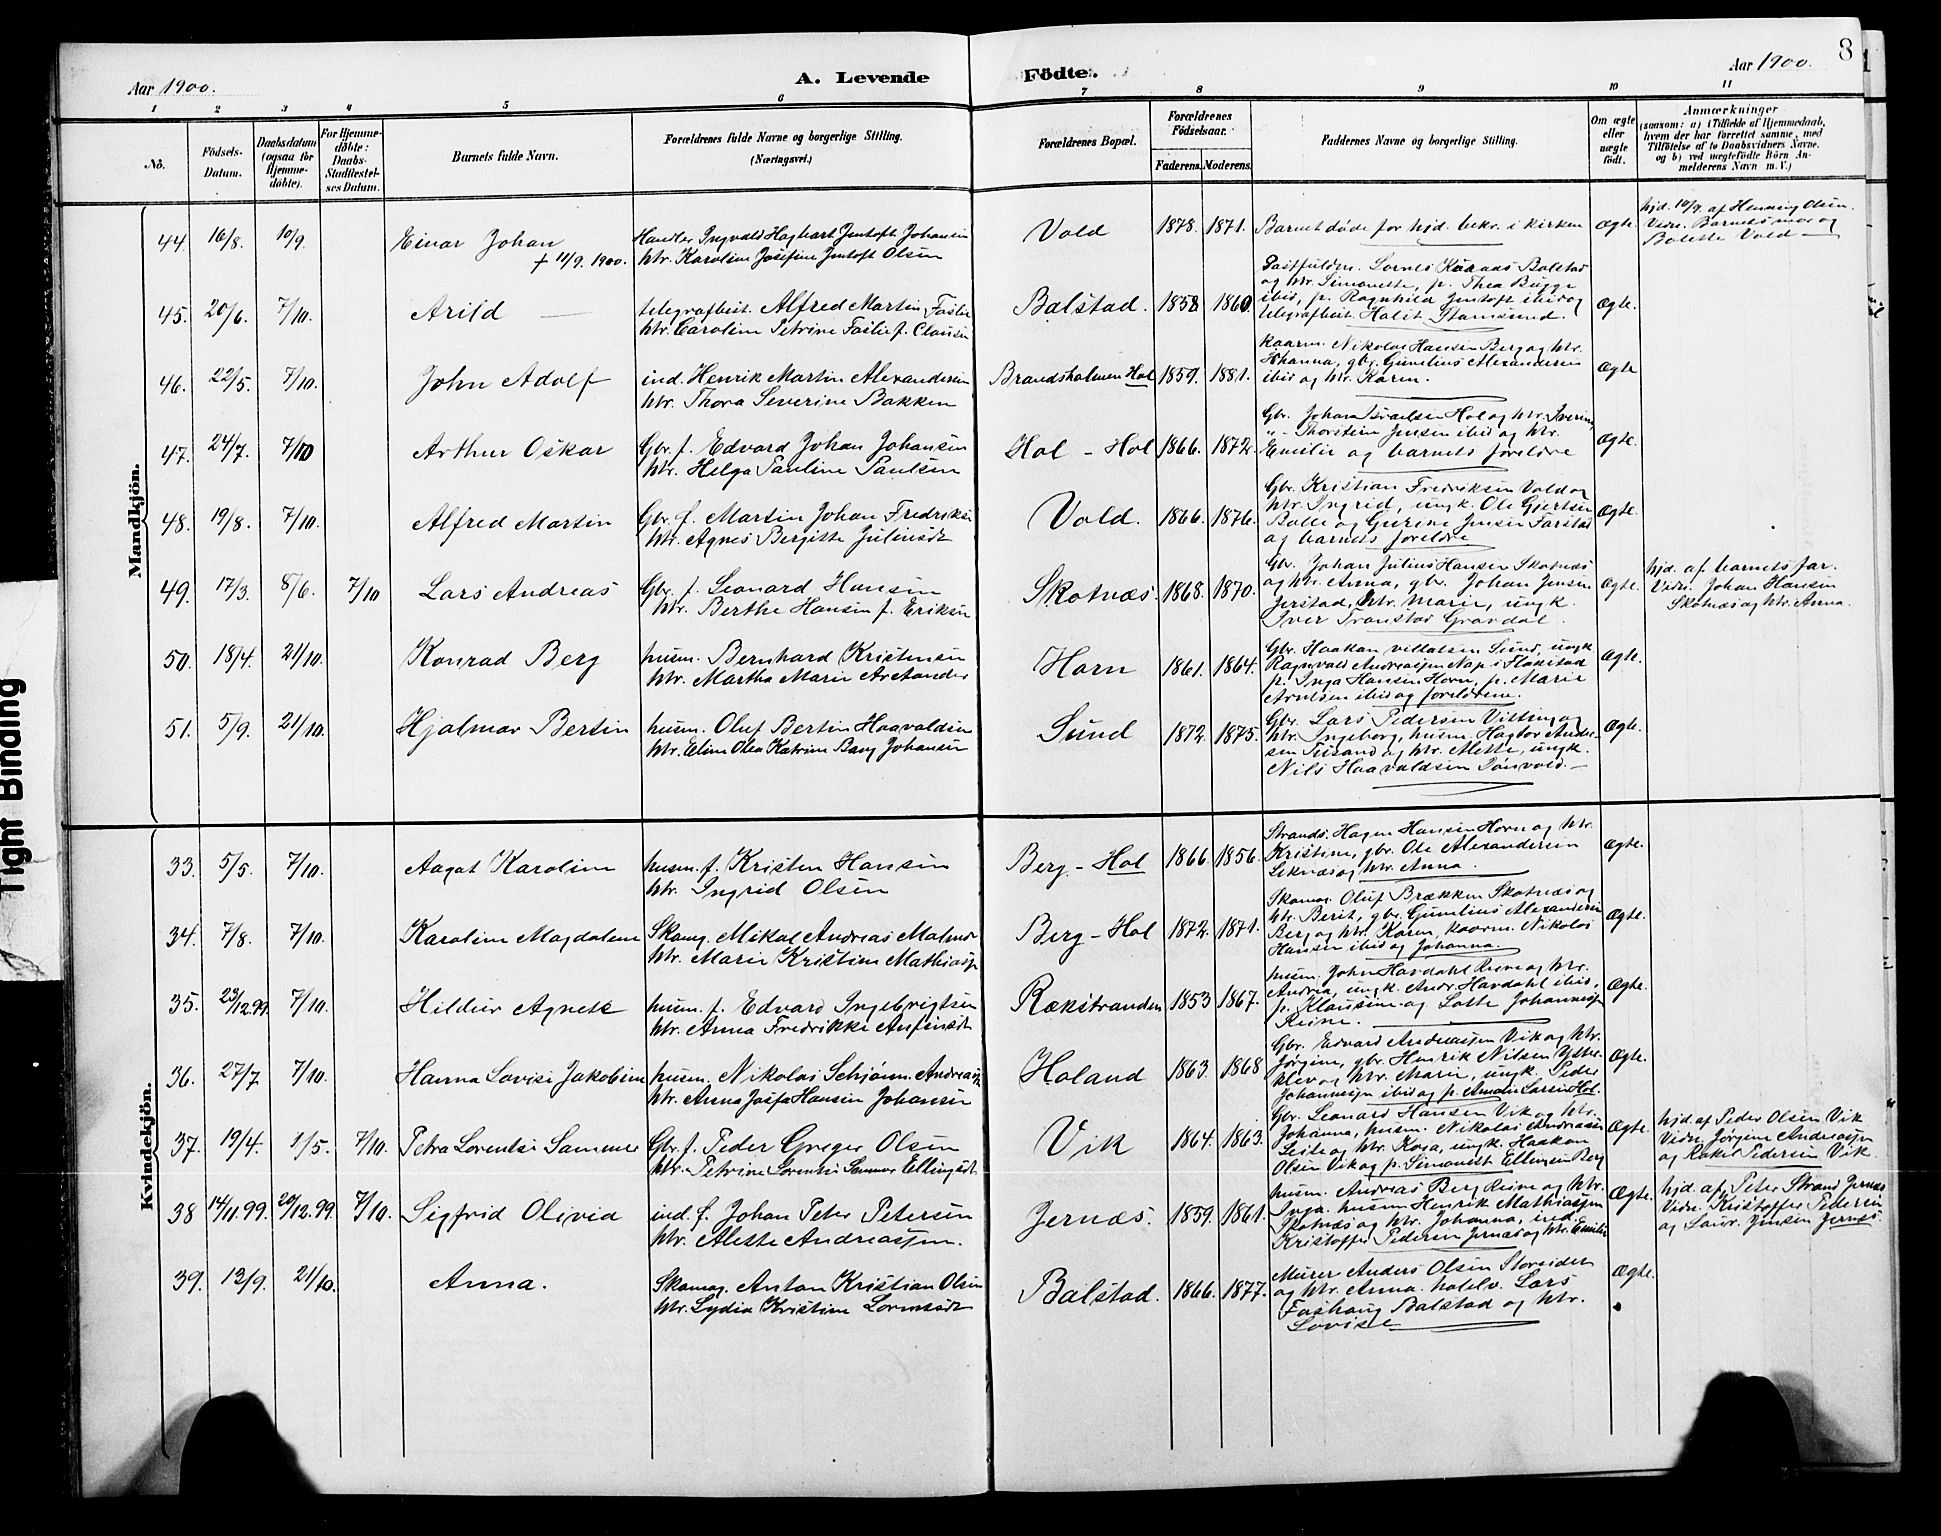 Aar 1900. A. Levende Födte. Aar 1900. 8
1 2 3 4 5 6 7 8 9 10 11
No. Födsels-Datum. Daabsdatum (ogsaa for Hjemme-döbte). For Hjemme-döbte: Daabs-Stadfæstel-ses Datum. Barnets fulde Navn. Forældrenes fulde Navne og borgerlige Stilling. (Næringsvei.) Forældrenes Bopæl. Forældrenes Födselsaar. Faderens. Moderens. Faddernes Navne og borgerlige Stilling. Om ægte eller uægte födt. Anmærkninger (saasom: a) i Tilfælde af Hjemmedaab, hvem der har forrettet samme, med Tilföielse af to Daabsvidners Navne, og b) ved uægtefödte Börn An-melderens Navn m. V.)
Mandkjön.
44. 16/8. 10/9. Einar Johan + 11/9. 1900. Handler Ingvald Hagbart Jentoft Johansen
htr. Karoline Josefine Jentoft Olsen
Vold 1878. 1871. Barnet døde før hjd. bekr. i kirken ægte. hjd. 10/9. af Henning Olsen.
Vidn. Barnets mor og
Balette Vold
45. 20/6. 7/10. Arild telegrafbest. Alfred Martin Faslie
htr. Caroline Petrine Faslie f. Clausen
Balstad. 1858 1860.
og htr. Simonette, p. Thea Bugge
ibid, p. Ragnhild Jentoft ibid og
telegrafbest. Holst Stamsund.
Ægte.
46. 22/5. 7/10. John Adolf ind. Henrik Martin Alexandersen
htr. Thora Severine Bakken
Brandsholmen Hol 1859. 1881. Kaarm. Nikolai Hansen Berg og htr.
Johanna, gbr. Gunelius Alexandersen
ibid og htr. Karen.
Ægte
47. 24/7. 7/10 Arthur Oskar Gbr. f. Edvard Johan Johansen
htr. Helga Pauline Paulsen
Hol - Hol 1866. 1872. Gbr. Johan Israelsen Hol og htr. Iverine
" - Thorstein Jensen ibid og htr.
Emilie og barnets foreldre
Ægte.
48. 19/8. 7/10. Alfred Martin Gbr. f. Martin Johan Fredriksen
htr. Agnes Bergitte Juliusdt
Vold. 1866. 1876. Gbr. Kristian Fredriksen Vold og
htr. Ingrid, ungk. Ole Gjertsen
Bolle og Gurine Jensen Farstad
og barnets foreldre
Ægte.
49. 17/3. 8/6. 7/10 Lars Andreas Gbr. f. Leonard Hansen
htr. Berthe Hansen f. Eriksen
Skotnæs. 1868. 1870. Gbr. Johan Julius Hansen Skotnæs
og htr. Anna, gbr. Johan Jensen
Jerstad, htr. Marie, ungk.
Iver Transtad Gravdal.
Ægte. hjd. af barnets far.
Vidn. Johan Hansen
Skotnæs og htr. Anna.
50. 18/4. 21/10. Konrad Berg husm. Bernhard Kristensen
htr. Martha Marie Aretander
Horn 1861. 1864. Gbr. Haakon Sund, ungk
Ragnvald Andreassen Nap i Flakstad
p. Inga Hansen Horn, p. Marie
Arntsen ibid og foreldrene.
Ægte.
51. 5/9. 21/10. Hjalmar Bertin husm. Oluf Bertin Haavaldsen
htr. Eline Olea Katrine Bang Johansen
Sund 1872. 1875. Gbr. Lars Pedersen Vitting og
htr. Ingeborg, husm. Hagtor Ander-
sen og htr. Alette, ungk.
Nils Haavaldsen
Ægte.
Kvindekjön.
33. 5/5. 7/10. Aagot Karoline husm. f. Kristen Hansen
htr. Ingrid Olsen
Berg - Hol 1866. 1856. Strands. Hagen Hansen Horn og htr.
Kristine, gbr. Ole Alexandersen
Leknæs og htr. Anna.
Ægte.
34. 7/8. 7/10. Karoline Magdalene Skomag. Mikal Andreas Malmo
htr. Marie Kristine Mathiassen
Berg - Hol 1872. 1871. Skomag. Oluf Brækken Skotnæs og
htr. Berit, gbr. Gunelius Alexandersen
Berg og htr. Karen, kaarm. Nikolai
Hansen ibid og Johanna.
Ægte.
35. 23/12.99. 7/10. Hildur Agnete husm. f. Edvard Ingebrigtsen
htr. Anna Fredrikke Anfinsdt
Rækstranden 1853 1867. husm. John Havdahl Reine og htr.
Andrea, ungk. Andr. Havdahl ibid,
p. Klausine og Lotte Johannessen
Reine.
Ægte.
36. 27/7. 7/10. Hanna Lovise Jakobine husm. Nikolai Schjønn. Andreassen
htr. Anna Josefa Hansen Johansen
Holand 1863. 1868 Gbr. Edvard Andreassen Vik og htr.
Jørgine, gbr. Henrik Nilsen Ystre-
klev og htr. Marie, ungk. Peder
Johannessen ibid og p. Amanda Larsen Hol.
Ægte.
37. 19/4. 1/5. 7/10. Petra Lorentse Sammer Gbr. f. Peder Greger Olsen
htr. Petrine Lorentse Sammer Ellingsdt.
Vik 1864. 1863. Gbr. Leonard Hansen Vik og htr.
Johanna, husm. Nikolai Andreassen
Leite og htr. Rosa, ungk. Haakon
Olsen Vik og p. Ellingsen Berg
Ægte. hjd. af Peder Olsen Vik
Vidn. Jørgine Andreassen
og Rakel Pedersen Vik.
38 14/11.99. 20/12.99. 7/10. Sigfrid Olivia ind. f. Johan Peter Petersen
htr. Alette Andreassen.
Jernæs. 1859. 1861. husm. Andreas Berg Reine og htr.
Inga. husm Henrik Mathiassen
Skotnæs og htr. Johanna, ind.
Kristoffer Pedersen Jernæs og htr. Emilie
Ægte. hjd. af Peter Strand Jernæs
Vidn. Kristoffer Pedersen
og Laur. Jensen Jernæs.
39. 13/9. 21/10. Anna. Skomag. Anton Kristian Olsen
htr. Lydia Kristine Lorentsdt
Balstad. 1866. 1877. Murer Anders Olsen Storeidet
og htr. Anna. Lars
Balstad og htr.
Lovise
Ægte.
Tight Binding